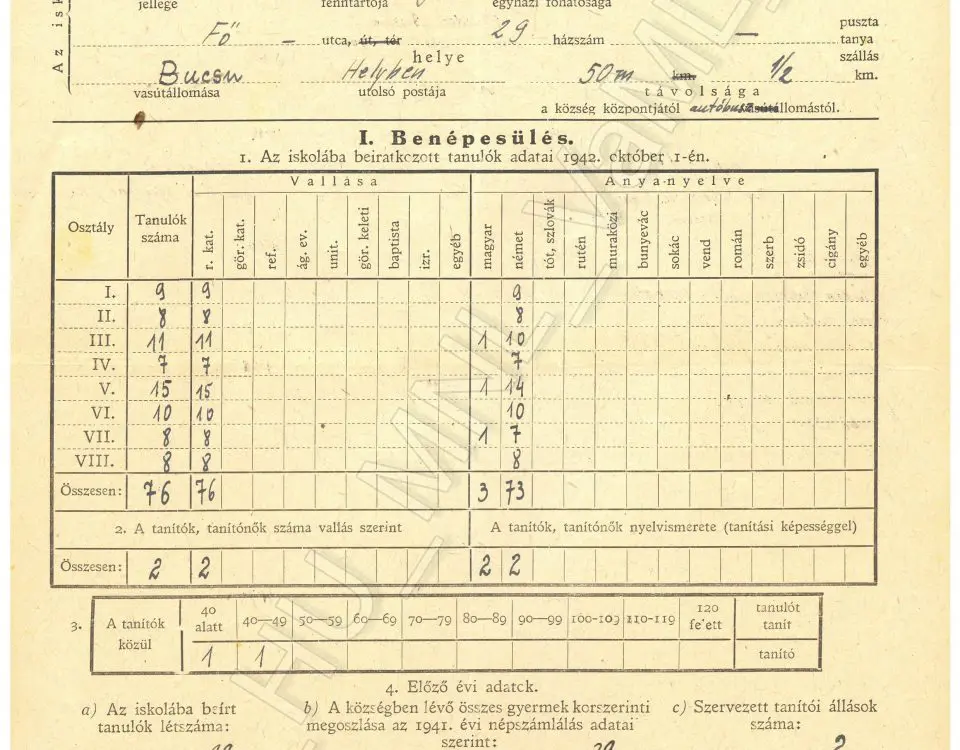 jellege fenntartója egyházi főhatósága
Az isk
Fő — utca, út, tér 29 házszám — puszta tanya szállás
helye
Bucsu Helyben 50m km. 1/2 km.
vasútállomása utolsó postája távolsága
a község központjától autóbusz állomástól.
I. Benépesülés.
1. Az iskolába beiratkozott tanulók adatai 1942. október 1-én.
Osztály Tanulók száma Vallása Anyanyelve
r. kat. gör. kat. ref. ág. ev. unit. gör. keleti baptista izr. egyéb magyar német tót, szlovák rutén muraközi bunyevác sokác vend román szerb zsidó cigány egyéb
I. 9 9 9
II. 8 8 8
III. 11 11 1 10
IV. 7 7 7
V. 15 15 1 14
VI. 10 10 10
VII. 8 8 1 7
VIII. 8 8 8
Összesen: 76 76 3 73
2. A tanítók, tanítónők száma vallás szerint A tanítók, tanítónők nyelvismerete (tanítási képességgel)
Összesen: 2 2 2 2
3. A tanítók közül 40 alatt 40—49 50—59 60—69 70—79 80—89 90—99 100-109 110-119 120 felett tanulót tanít
1 1 tanító
4. Előző évi adatok.
a) Az iskolába beírt b) A községben lévő összes gyermek korszerinti c) Szervezett tanítói állások
tanulók létszáma: megoszlása az 1941. évi népszámlálás adatai száma:
szerint:
HU_MNL_VaML